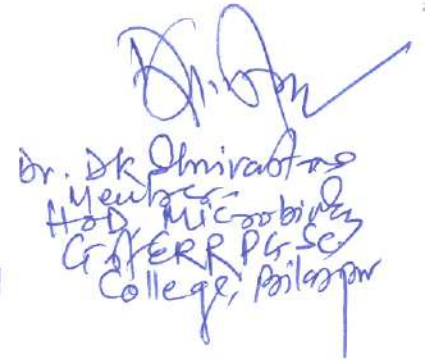 Dr. DK Shrivastava
Member
HoD, Microbiology
Govt ERR PG Sc.
College, Bilaspur